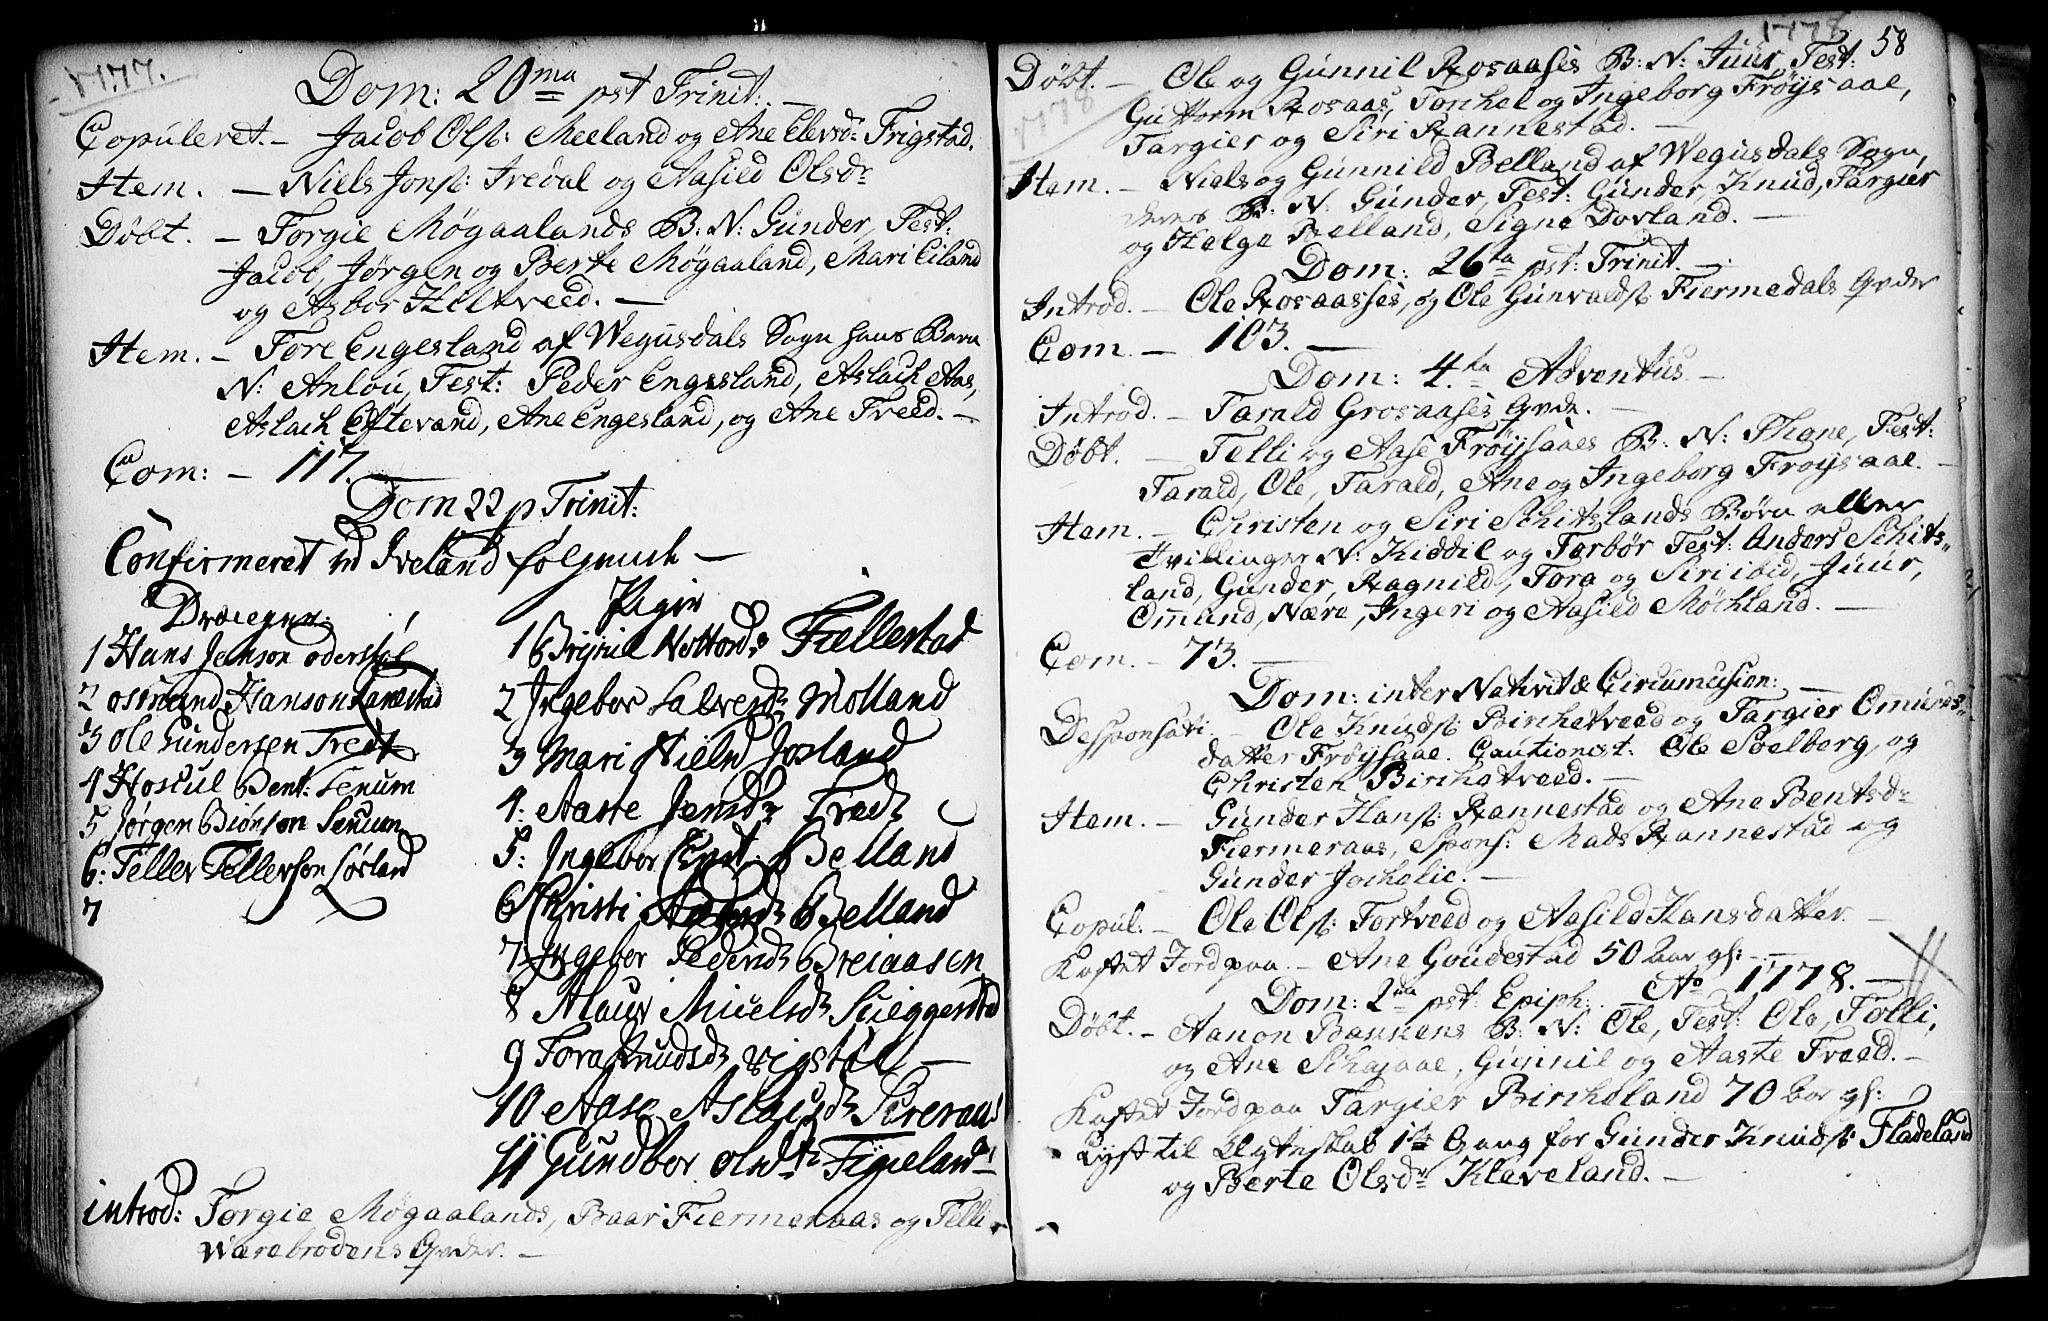 1777.
Dom: 20ma pst Trinit: —
Copuleret. — Jacob Ols: Meeland og Ane Elevsd: Frigstad.
Item. — Niels Jons: Iredal og Aasild Olsdr
Döbt. — Torgie Mögaalands B: N: Gunder, Test:
Jacob, Jörgen og Berte Mögaaland, Mari Eiland
og Asbor Hiltveed. —
Item. — Tore Engesland af Wegusdals Sogn hans Barn
N: Anlou, Test: Peder Engesland, Aslach Aas,
Aslach Eftevand, Ane Engesland, og Ane Treed. —
Com: — 117.
Dom 22 p Trinit:
Confirmeret vd Iveland følgende —
Drænger.
1 Hans Jenson oderstøl
2 osmund Hanson
3 ole Gundersen Tredt
4 Hoscul Bent: Senum
5 Jørgen Biönson Senum
6: Tellev Tellevson Løsland
7
Piger
1 Nottords Fiellestad
2 Ingebor Salvesd: Molland
3 Mari Nielsd Josland
4: Aaste Jensd: Tred
5: Ingebor Belland
6 Christi Belland
7 Ingebor Pedersd: Breiaasen
8 Mauv Skieggestad
9 Tora Knudsd: vigstøl —
10 Aase Aslacsd:
11 Gundbor olsd:
introd: Torgie Mögaalands, Baar Fiermeraas og Telli
Warebrodens qvder. —
1778. 58
1778
Döbt. — Ole og Gunnil Rosaases B: N: Juur, Test:
Guttorm Rosaas, Torchel og Ingeborg Fröysaae,
Targier og Siri Rannestad. —
Item. — Niels og Gunnild Belland af Wegusdals Sogn,
deres B: N: Gunder, Test: Gunder, Knud, Targier
og Helge Belland, Signe Dovland. —
Dom: 26ta pst: Trinit. —
Introd. — Ole Rosaasses, og Ole Gunvalds: Fiermedals qvder
Com. — 103. —
Dom: 4.ta Adventus. —
Introd. — Tarald Grosaases qvde. —
Döbt. — Telli og Aase Fröysaaes B: N: Thone, Test:
Tarald, Ole, Tarald, Ane og Ingeborg Froysaae. —
Item. — Christen og Siri Schitslands Börn eller
Tvillinger N: Kiddil og Torbör Test: Anders Schits-
land, Gunder, Ragnild, Tora og Siri ibid, Juur,
Omund, Nære, Ingeri og Aasild Möchland. —
Com. — 73. —
Dom: inter Nativit & Circumcision: —
Desponsati. — Ole Knuds: Birchetveed og Targier Omunds-
datter Fröysaae. Cautionist: Ole Soelberg, og
Christen Birchetveed. —
Item. — Gunder Hans: Rannestad og Ane Bentsdr
Fiermeraas, Spons: Mads Rannestad og
Gunder Jocholie. —
Copul. — Ole Ols: Tortveed og Aasild Hansdatter. —
Kastet Jord paa. — Ane Goudestad 50 aar gl: —
Ao 1778. —
Dom: 2da pst: Epiph:
Döbt. — Aanon Bakkens B: N: Ole, Test: Ole, Tolli,
og Ane Schajaae, Gunnil og Aaste Treed. —
Kastet Jord paa Targier Birkeland 70 aar gl:
Lyst til Ægteskab 1ste Gang for Gunder Knuds: Fladeland
og Berte Olsdr Kleveland. —